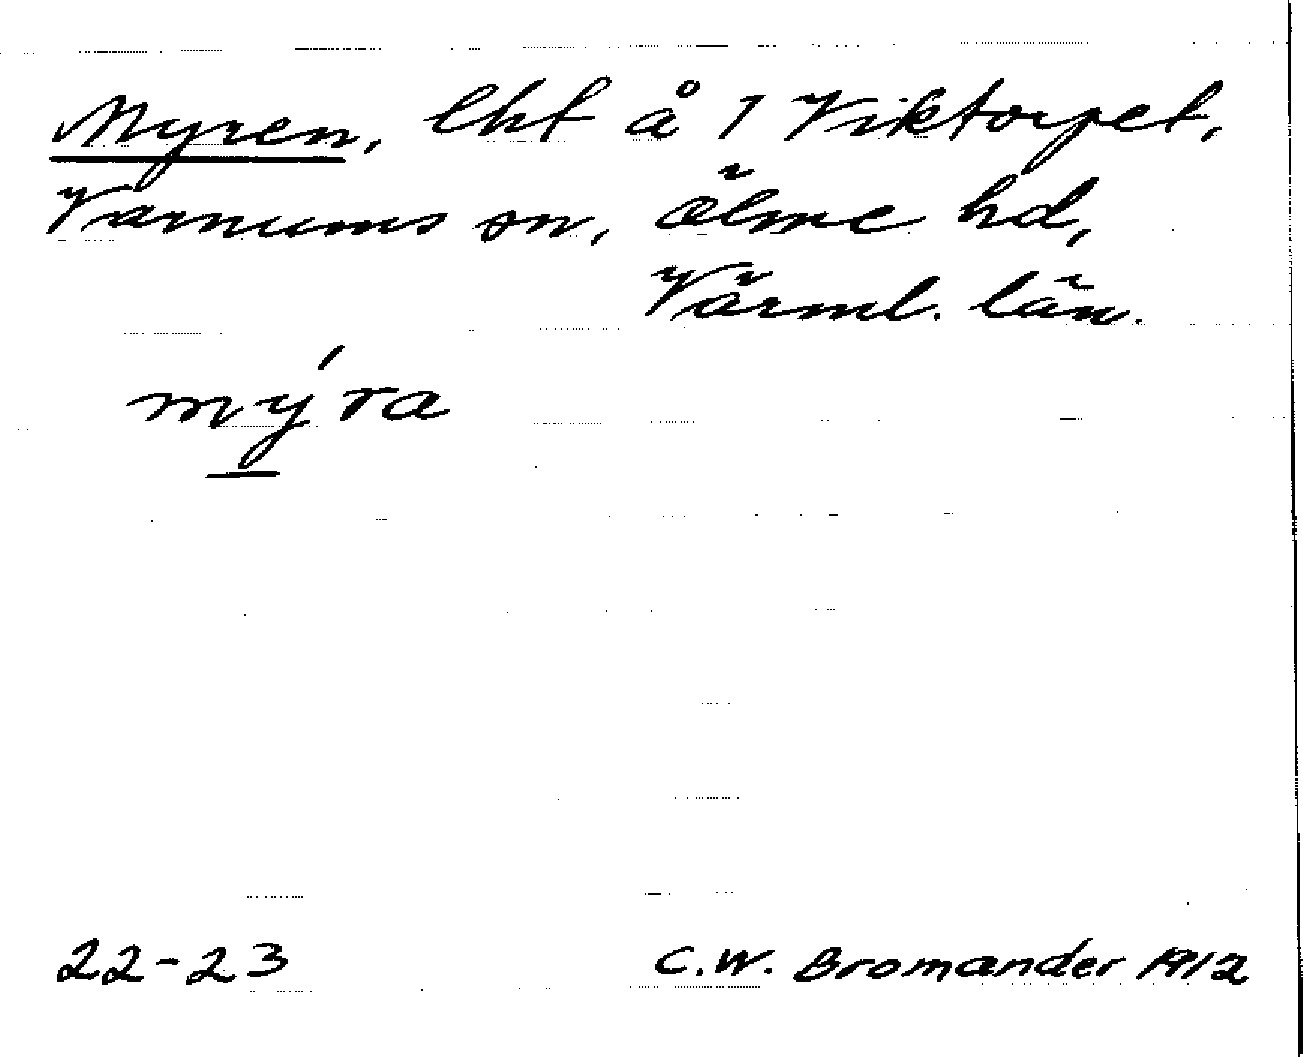 Myren, lht å 1 Viktorpet,
Varnums sn, Ölme hd,
Värml. län.
mýra
22-23 C.W. Bromander 1912